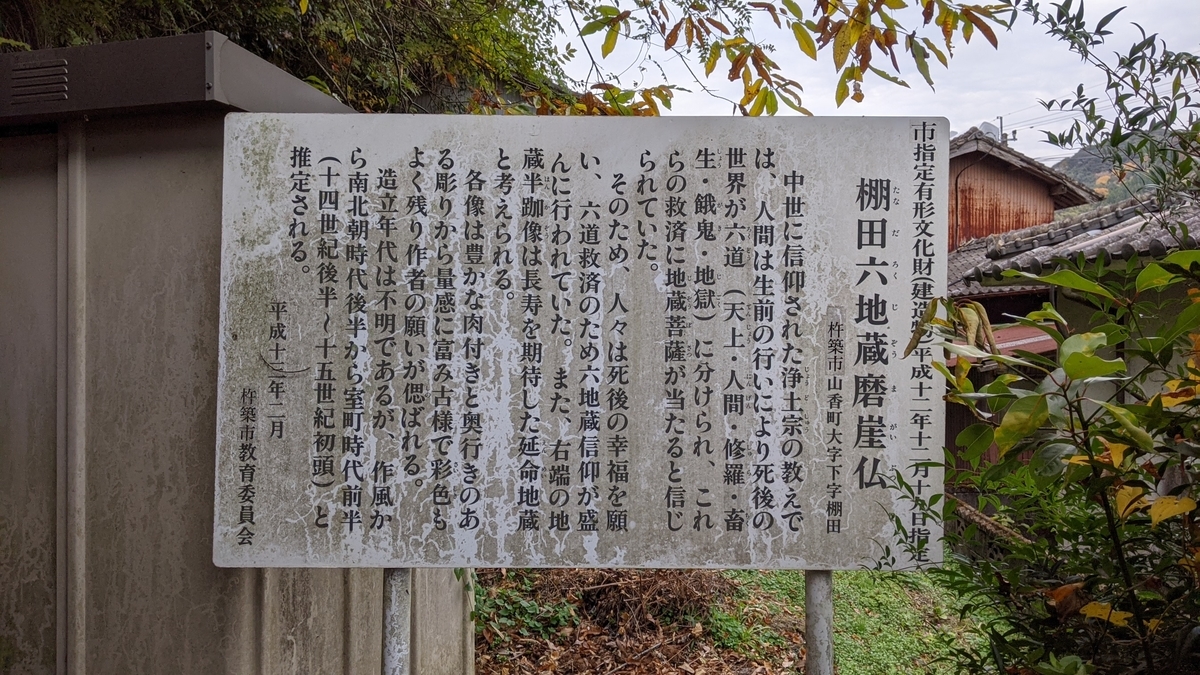 市指定有形文化財建造物 平成十二年十二月十九日指定
棚田六地蔵磨崖仏
杵築市山香町大字下字棚田
中世に信仰された浄土宗の教えで
は、人間は生前の行いにより死後の
世界が六道(天上・人間・修羅・畜
生・餓鬼・地獄)に分けられ、これ
らの救済に地蔵菩薩が当たると信じ
られていた。
そのため、人々は死後の幸福を願
い、六道救済のため六地蔵信仰が盛
んに行われていた。また、右端の地
蔵半跏像は長寿を期待した延命地蔵
と考えられる。
各像は豊かな肉付きと奥行きのあ
る彫りから量感に富み古様で彩色も
よく残り作者の願いが偲ばれる。
造立年代は不明であるが、作風か
ら南北朝時代後半から室町時代前半
(十四世紀後半〜十五世紀初頭)と
推定される。
平成十三年二月
杵築市教育委員会